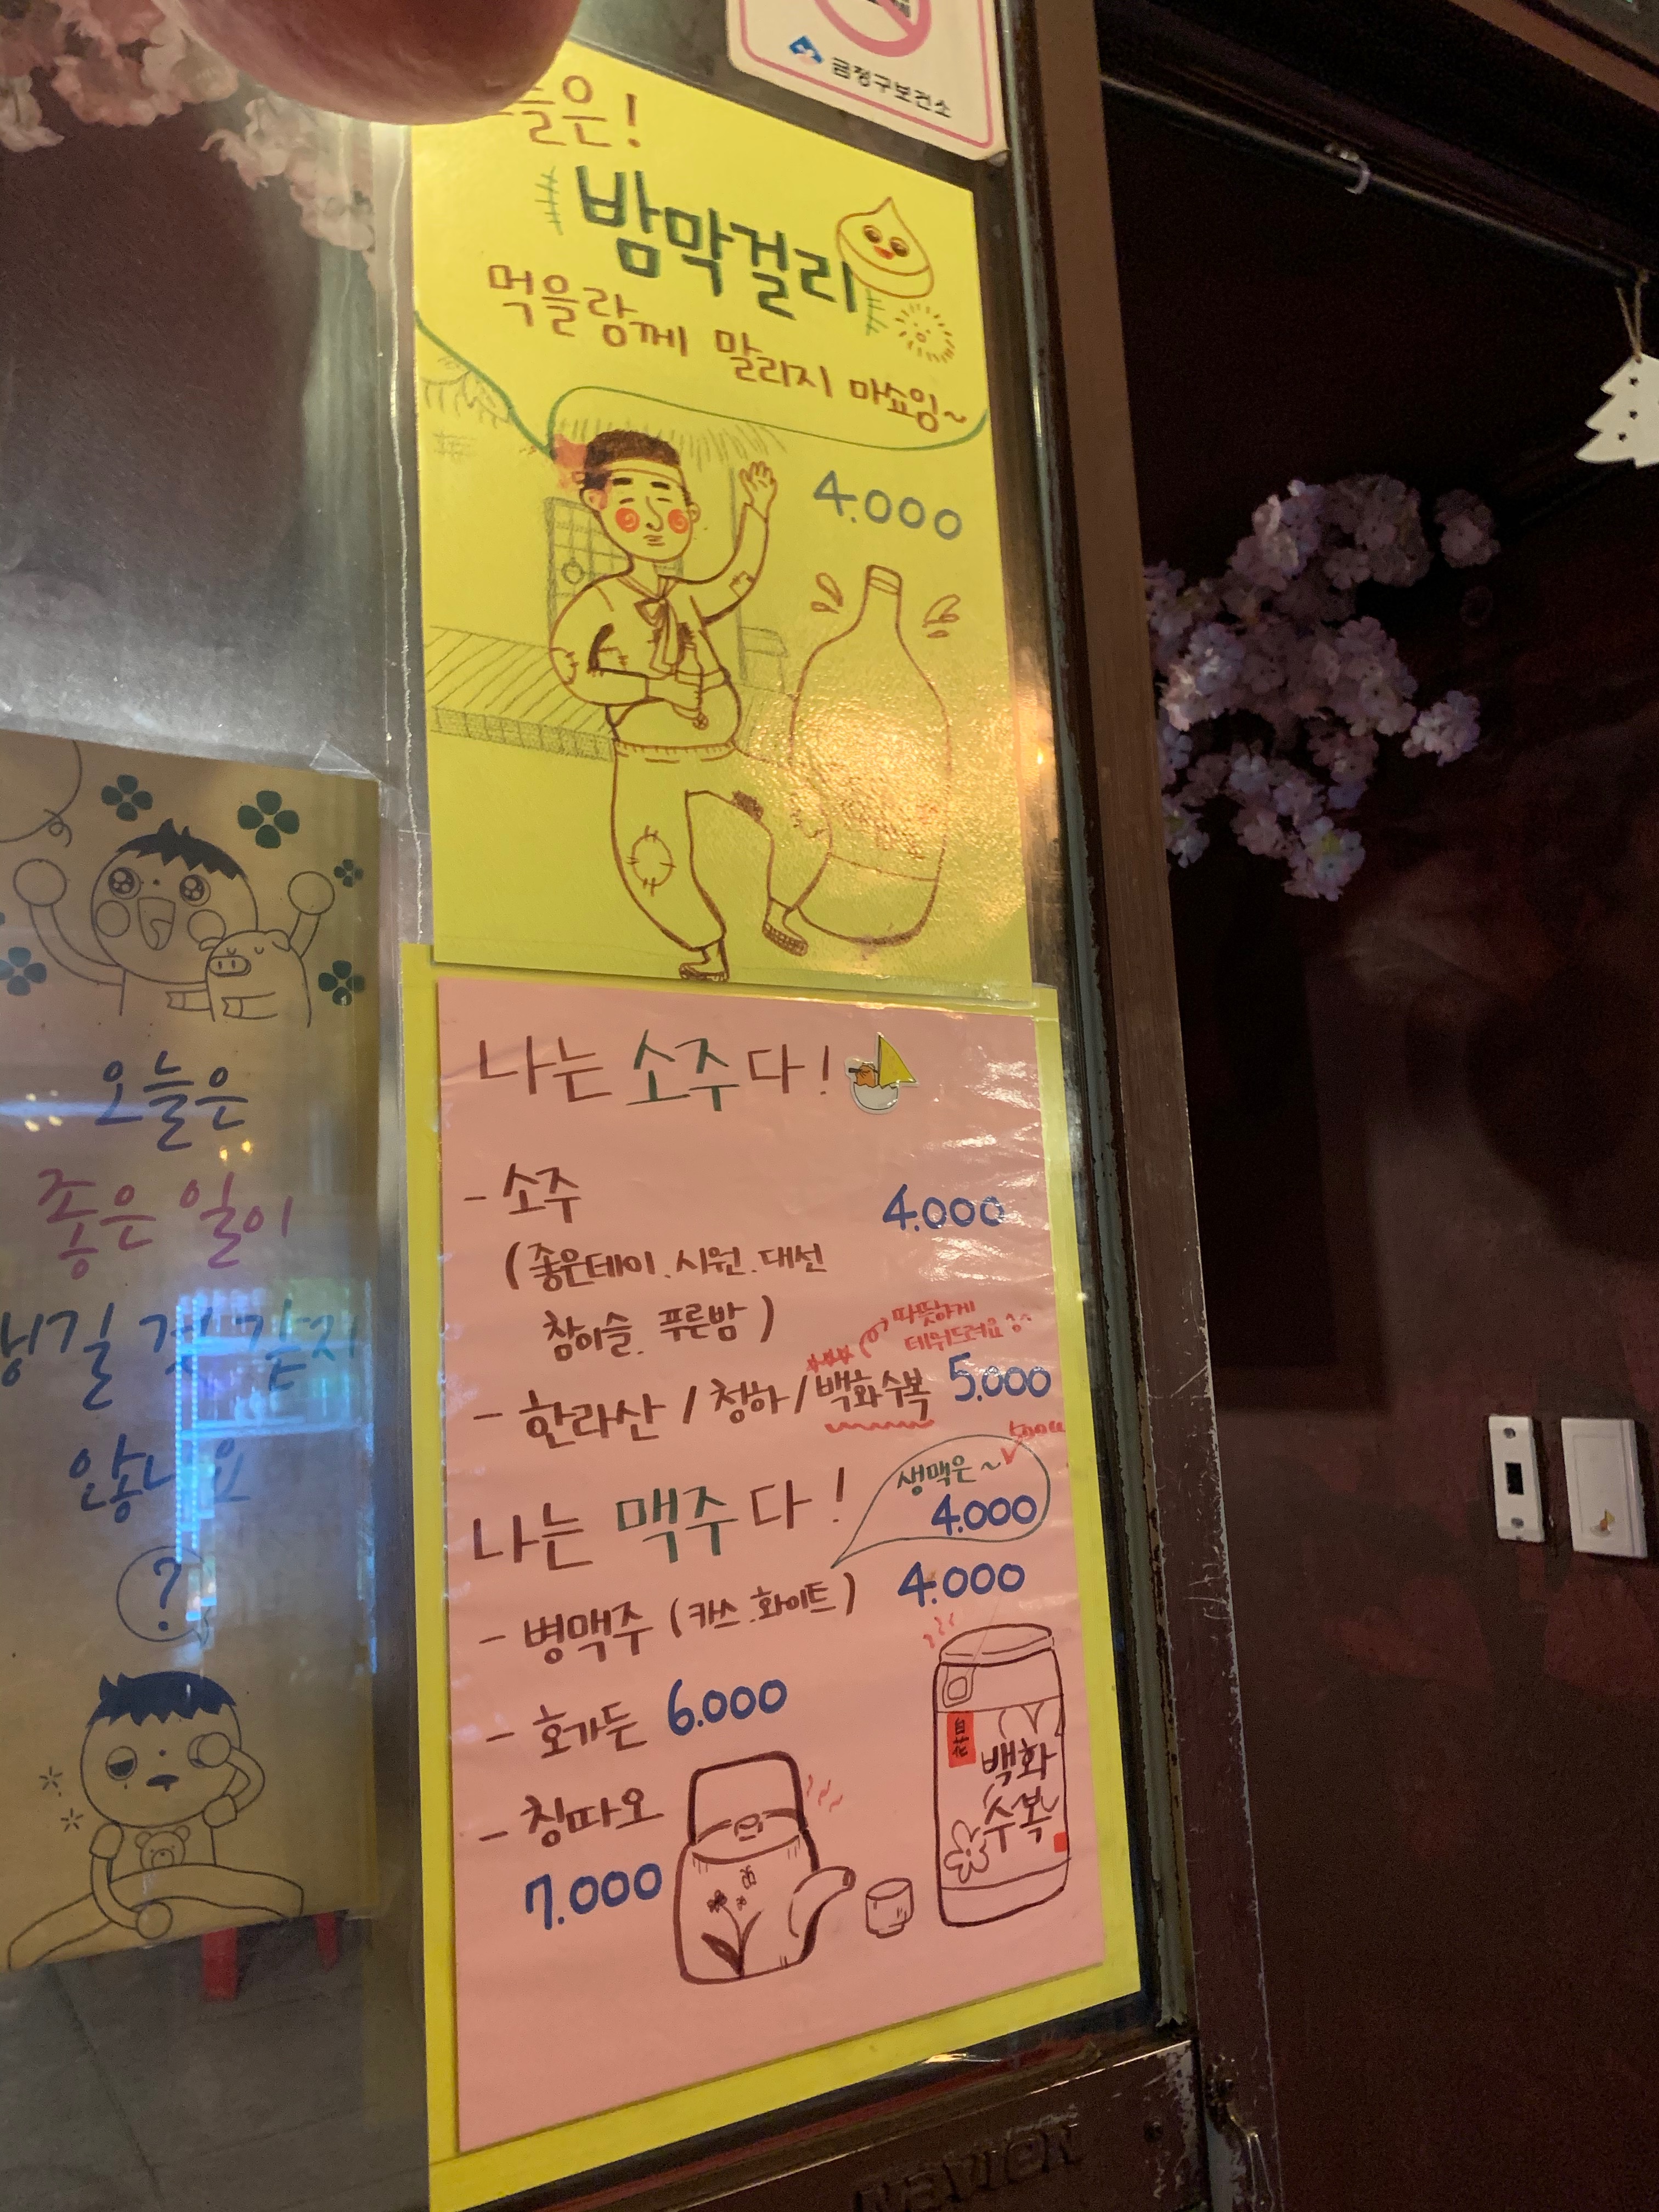 금정구보건소
늘은!
밤막걸리
먹을랑께 말리지 마쇼잉~
4.000
나는 소주다!
- 소주 4.000
(좋은데이. 시원. 대선
참이슬. 푸른밤)
따뜻하게
데워드려요^^
- 한라산 / 청하 / 백화수복 5.000
나는 맥주다!
생맥은~
4.000
- 병맥주 (카스. 화이트) 4.000
- 호가든 6.000
- 칭따오
7.000
백화
수복
오늘은
좋은 일이
생길 것 같지
않나요
?